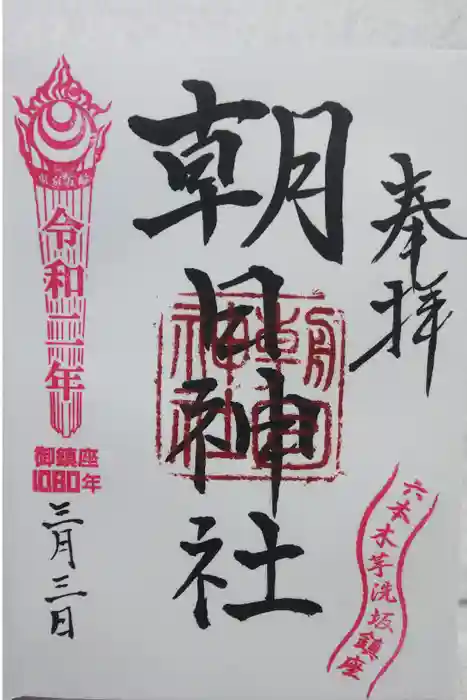 奉拝
六本木芋洗坂鎮座
朝日神社
朝日神社
令和二年
御鎮座
1080年
三月三日